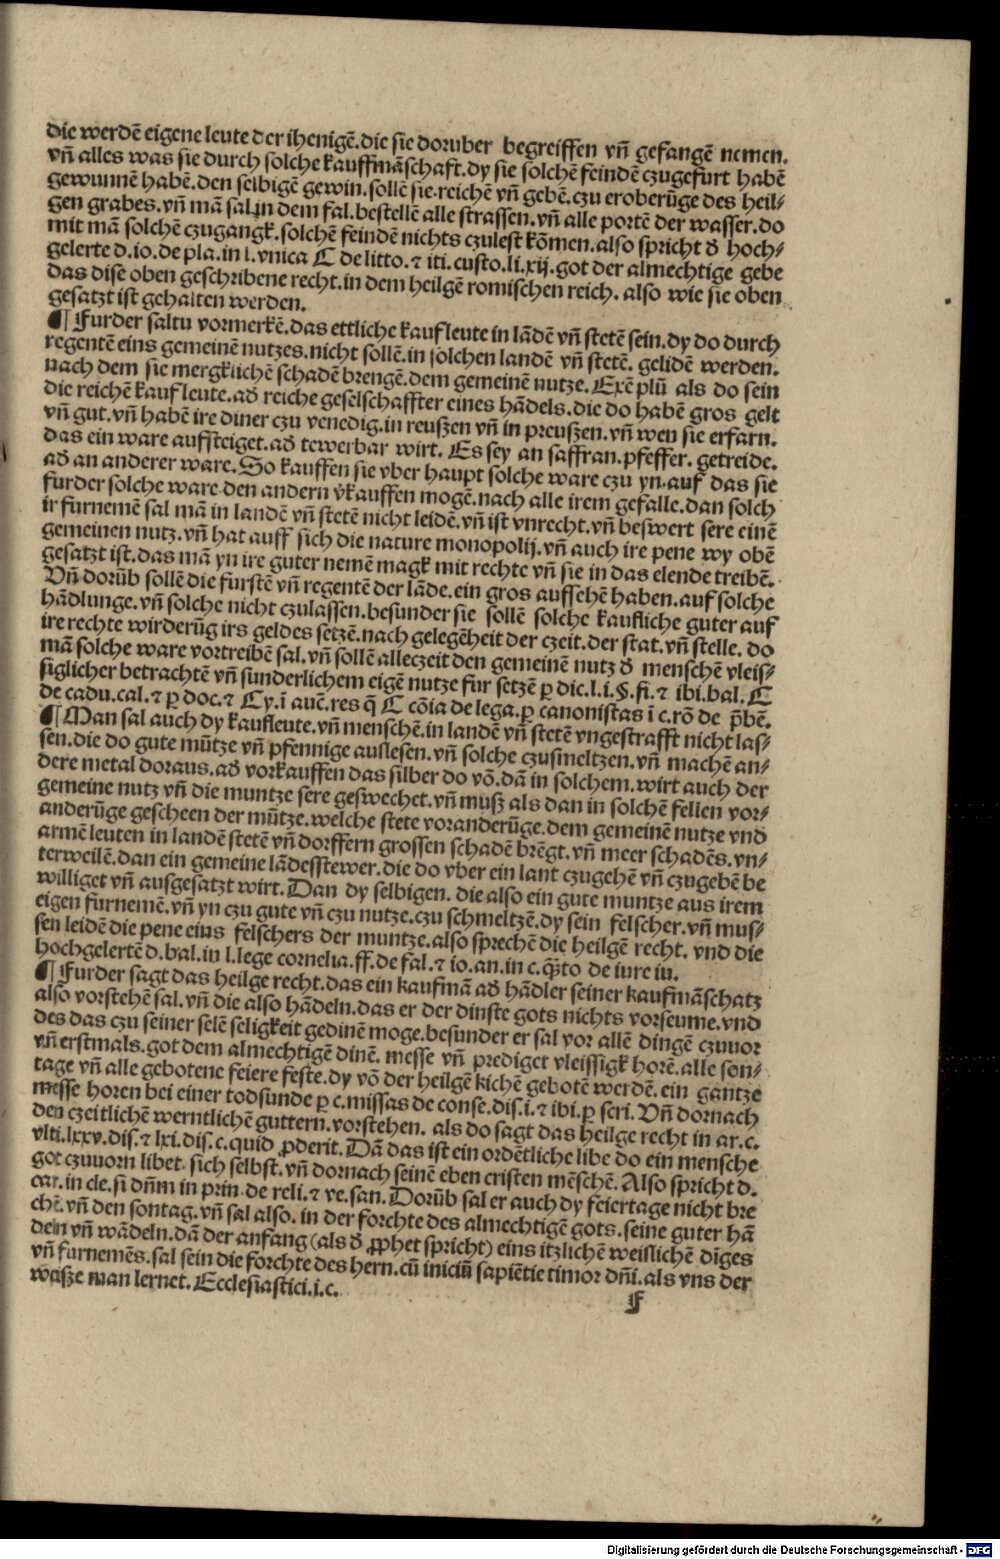 die werdẽ eigene leute der ihenigẽ.die sie doruber begreiffen vñ gefangẽ nemen.
vñ alles was sie durch solche kauffmãschaft.dy sie solchẽ feindẽ czugefurt habẽ
gewunnẽ habẽ.den selbigẽ gewin.sollẽ sie.reichẽ vñ gebẽ.czu eroberũge des heil⸗
gen grabes.vñ mã sal in dem fal.bestellẽ alle strassen.vñ alle portẽ der wasser.do
mit mã solchẽ czugangk.solchẽ feindẽ nichts czulest kõmen.also spricht ð hoch⸗
gelerte d.io.de pla.in l.vnica C de litto.⁊ iti.custo.li.xij.got der almechtige gebe
das dise oben geschribene recht.in dem heilgẽ romischen reich. also wie sie oben
gesatzt ist gehalten werden.
¶ Furder saltu vormerkẽ.das ettliche kaufleute in lãdẽ vñ stetẽ sein.dy do durch
regentẽ eins gemeinẽ nutzes.nicht sollẽ.in solchen landẽ vñ stetẽ. gelidẽ werden.
nach dem sie mergklichẽ schadẽ brengẽ.dem gemeinẽ nutze. Exẽ plũ als do sein
die reichẽ kaufleute.að reiche geselschaffter eines hãdels.die do habẽ gros gelt
vñ gut.vñ habẽ ire diner czu venedig.in reußen vñ in preußen.vñ wen sie erfarn.
das ein ware auffsteiget.að tewerbar wirt. Es sey an saffran.pfeffer. getreide.
að an anderer ware.So kauffen sie vber haupt solche ware czu yn.auf das sie
furder solche ware den andern v̉kauffen mogẽ.nach alle irem gefalle.dan solch
ir furnemẽ sal mã in landẽ vñ stetẽ nicht leidẽ.vñ ist vnrecht.vñ beswert sere einẽ
gemeinen nutz.vñ hat auff sich die nature monopolij.vñ auch ire pene wy obẽ
gesatzt ist.das mã yn ire guter nemẽ magk mit rechte vñ sie in das elende treibẽ.
Vñ dorũb sollẽ die furstẽ vñ regentẽ der lãde.ein gros auffsehẽ haben.auf solche
hãdlunge.vñ solche nicht czulassen.besunder sie sollẽ solche kaufliche guter auf
ire rechte wirderũg irs geldes setzẽ.nach gelegẽheit der czeit.der stat.vñ stelle. do
mã solche ware vortreibẽ sal.vñ sollẽ alleczeit den gemeinẽ nutz ð menschẽ vleis⸗
siglicher betrachtẽ vñ sunderlichem eigẽ nutze fur setzẽ ꝑ dic.l.i.§.fi.⁊ ibi.bal. C
de cadu.cal.⁊ ꝑ doc.⁊ Cy.ĩ auẽ.res q̃ C cõia de lega.ꝑ canonistas ĩ c.rõ de p̃bẽ.
¶ Man sal auch dy kaufleute.vñ menschẽ.in landẽ vñ stetẽ vngestrafft nicht las⸗
sen.die do gute mũtze vñ pfennige auslesen.vñ solche czusmeltzen.vñ machẽ an⸗
dere metal doraus.að vorkauffen das silber do võ.dã in solchem.wirt auch der
gemeine nutz vñ die muntze sere geswechet.vñ muß als dan in solchẽ fellen vor⸗
anderũge gescheen der mũtze.welche stete voranderũge.dem gemeinẽ nutze vnd
armẽ leuten in landẽ stetẽ vñ dorffern grossen schadẽ brẽgt.vñ meer schadẽs.vn⸗
terweilẽ.dan ein gemeine lãdesstewer.die do vber ein lant czugehẽ vñ czugebẽ be
williget vñ ausgesatzt wirt.Dan dy selbigen. die also ein gute muntze aus irem
eigen furnemẽ.vñ yn czu gute vñ czu nutze.czu schmeltzẽ.dy sein felscher.vñ mus⸗
sen leidẽ die pene eins felschers der muntze.also sprechẽ die heilgẽ recht. vnd die
hochgelertẽ d.bal.in l.lege cornelia.ff.de fal.⁊ io.an.in c.q̃to de iure iu.
¶ Furder sagt das heilge recht.das ein kaufmã að hãdler seiner kaufmãschatz
also vorstehẽ sal.vñ die also hãdeln.das er der dinste gots nichts vorseume.vnd
des das czu seiner selẽ seligkeit gedinẽ moge.besunder er sal vor allẽ dingẽ czuuor
vñ erstmals.got dem almechtigẽ dinẽ. messe vñ prediget vleissigk horẽ.alle son⸗
tage vñ alle gebotene feiere feste.dy võ der heilgẽ kichẽ gebotẽ werdẽ.ein gantze
messe horen bei einer todsunde ꝑ c.missas de conse.dis.i.⁊ ibi.ꝑ scri. Vñ dornach
den czeitlichẽ werntlichẽ guttern.vorstehen. als do sagt das heilge recht in ar.c.
vlti.lxxv.dis.⁊ lxi.dis.c.quid ꝓderit. Dã das ist ein ordẽtliche libe do ein mensche
got czuuorn libet. sich selbst.vñ dornach seinẽ eben cristen mẽschẽ. Also spricht d.
car.in cle.si dñm in prin.de reli.⁊ ve.san. Dorũb sal er auch dy feiertage nicht bre
chẽ.vñ den sontag.vñ sal also. in der forchte des almechtigẽ gots.seine guter hã
deln vñ wãdeln.dã der anfang (als ð ꝓphet spricht) eins itzlichẽ weislichẽ dĩges
vñ furnemẽs.sal sein die forchte des hern.cũ iniciũ sapiẽtie timor dñi.als vns der
waßze man lernet. Ecclesiastici.i.c.
F
Digitalisierung gefördert durch die Deutsche Forschungsgemeinschaft - DFG